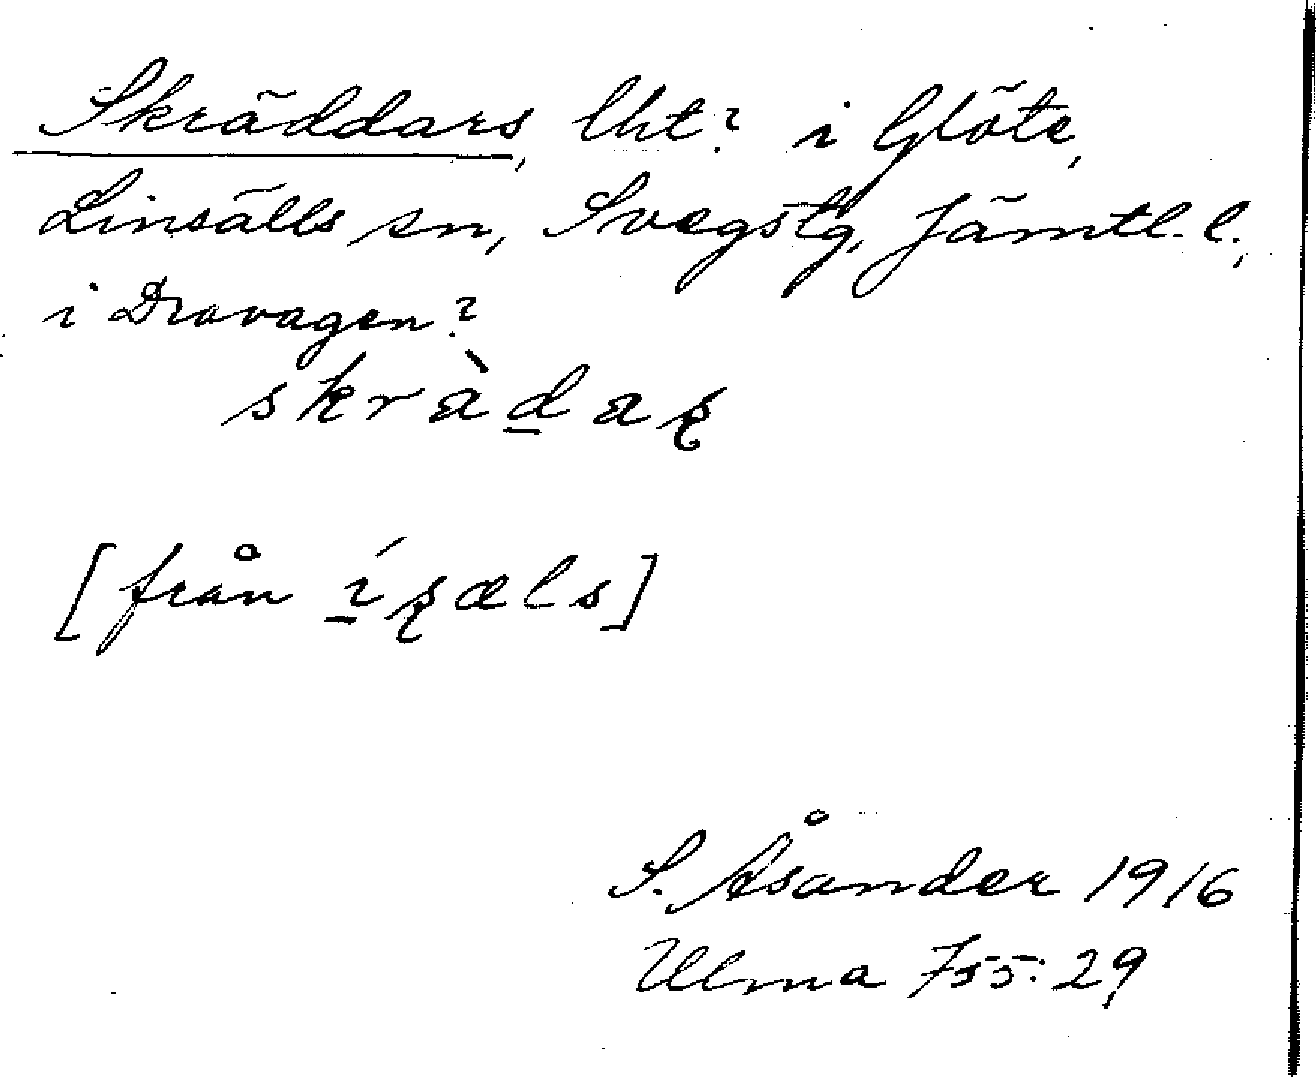 Skräddars, lht? i Glöte,
Linsälls sn, Svegs tg, Jämtl. l.,
i Dravagen?
skràdaʂ
[från íʂæls]
S. Åsander 1916
Ulma 755:29